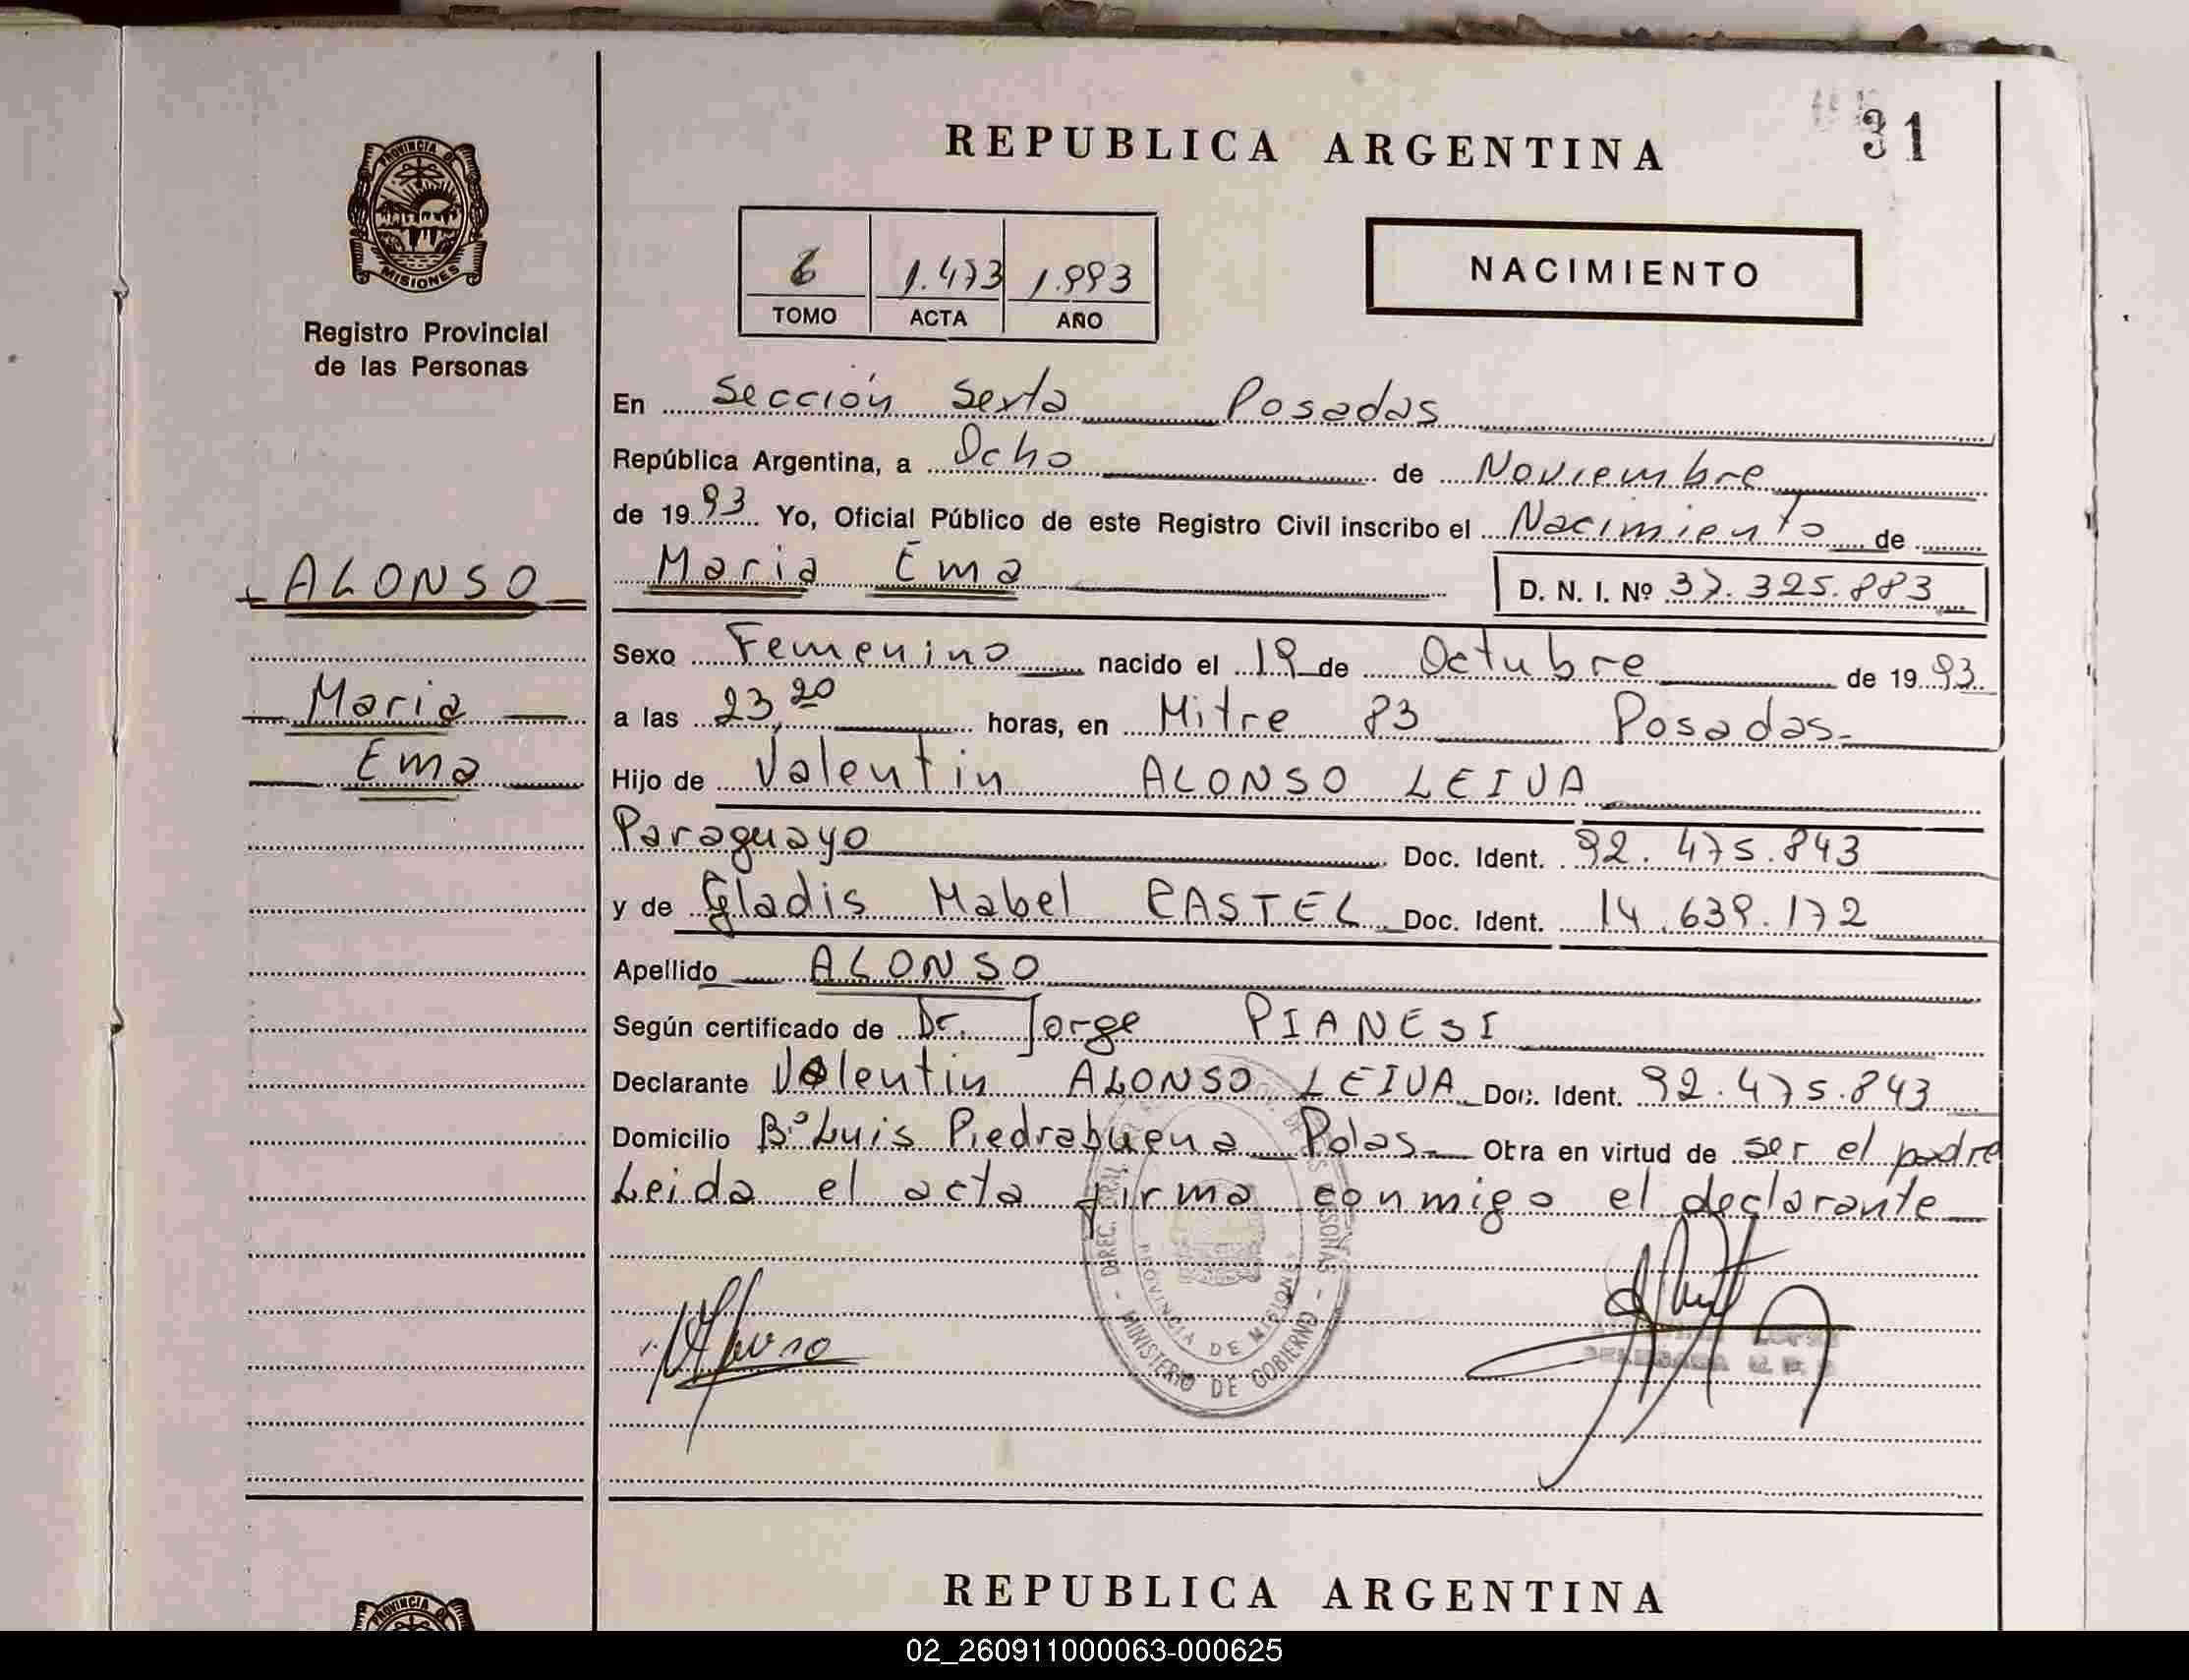 REPUBLICA ARGENTINA
31
PROVINCIA DE
MISIONES
Registro Provincial
de las Personas
6 1.473 1.993
TOMO ACTA AÑO
NACIMIENTO
En Sección Sexta Posadas
República Argentina, a Ocho de Noviembre
de 1993 Yo, Oficial Público de este Registro Civil inscribo el Nacimiento de
Maria Ema D. N. I. Nº 37.325.883
ALONSO
Maria
Ema
Sexo Femenino nacido el 19 de Octubre de 1993
a las 23,20 horas, en Mitre 83 Posadas
Hijo de Valentin ALONSO LEIVA
Paraguayo Doc. Ident. 92.475.843
y de Gladis Mabel CASTEL Doc. Ident. 14.639.172
Apellido ALONSO
Según certificado de Dr. Jorge PIANESI
Declarante Valentin ALONSO LEIVA Doc. Ident. 92.475.843
Domicilio Bº Luis Piedrabuena Pdas Obra en virtud de ser el padre
Leida el acta firma conmigo el declarante
DIREC. GRAL. DE LAS PERSONAS
PROVINCIA DE MISIONES
MINISTERIO DE GOBIERNO
REPUBLICA ARGENTINA
PROVINCIA DE
02_260911000063-000625